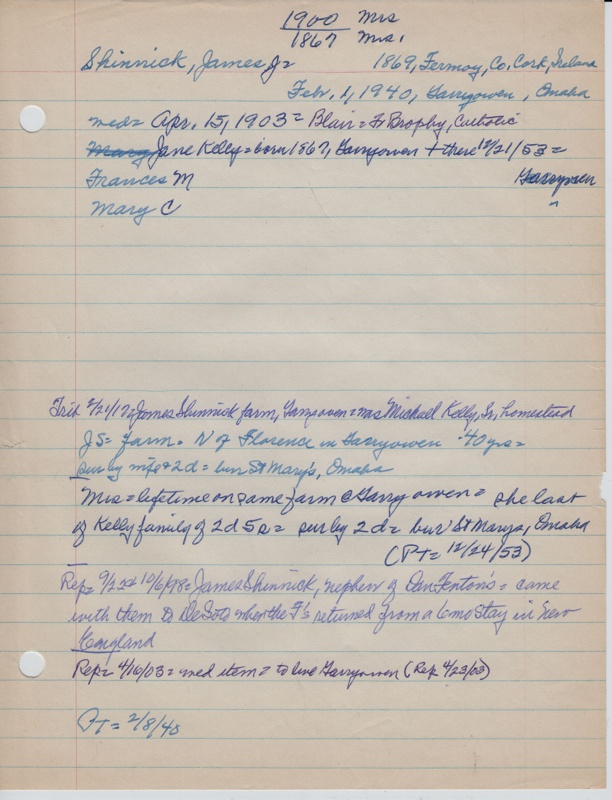 1900 Mrs
1867 Mrs.
Shinnick, James Jr 1869, Fermoy, Co. Cork, Ireland
Febr. 1, 1940, Garryowen, Omaha
med= Apr. 15, 1903= Blair= Fr Brophy, Catholic
Mary Jane Kelly= born 1867, Garryowen + there 12/21/53=
Frances M Garryowen
Mary C
Trib 2/21/17= James Shinnick farm, Garryowen= was Michael Kelly, Sr, homestead
JS= farm. N of Florence in Garryowen 40 yrs=
sur by wife & 2d= bur St Mary's, Omaha
Mrs= lifetime on same farm @ Garryowen= she last
of Kelly family of 2d 5s= sur by 2d= bur St Marys, Omaha
(PT= 12/24/53)
Rep= 9/22 & 10/6/98= James Shinnick, nephew of Dan Fenton's= came
with them to DeSoto when the F's returned from a 6mo stay in New
England
Rep= 4/16/03= wed item= to live Garryowen (Rep 4/23/03)
PT= 2/8/40